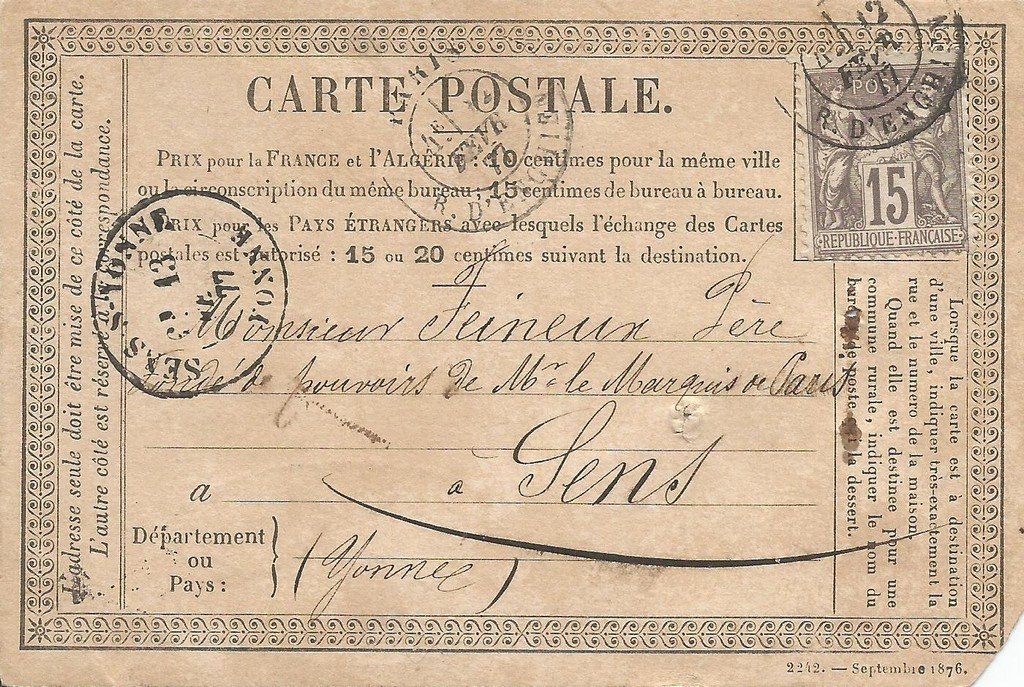 CARTE POSTALE.
PRIX pour la FRANCE et l'ALGÉRIE : 10 centimes pour la même ville
ou la circonscription du même bureau ; 15 centimes de bureau à bureau.
PRIX pour les PAYS ÉTRANGERS avec lesquels l'échange des Cartes
postales est autorisé : 15 ou 20 centimes suivant la destination.
PARIS
1E
FEVR
77
R. D'ENGHIEN
12
FEVR
77
R. D'ENGHIEN
POSTE
15
RÉPUBLIQUE-FRANÇAISE
SENS-S-YONNE
13
FEVR
77
YONNE
Monsieur Feineux Père
fondé de pouvoirs de Mr le Marquis de
à Sens
a
Département
ou
Pays :
(Yonne)
L'adresse seule doit être mise de ce côté de la carte.
L'autre côté est réservé à la correspondance.
Lorsque la carte est à destination
d'une ville, indiquer très-exactement la
rue et le numéro de la maison.
Quand elle est destinée pour une
commune rurale, indiquer le nom du
bureau de poste qui la dessert.
2242. — Septembre 1876.